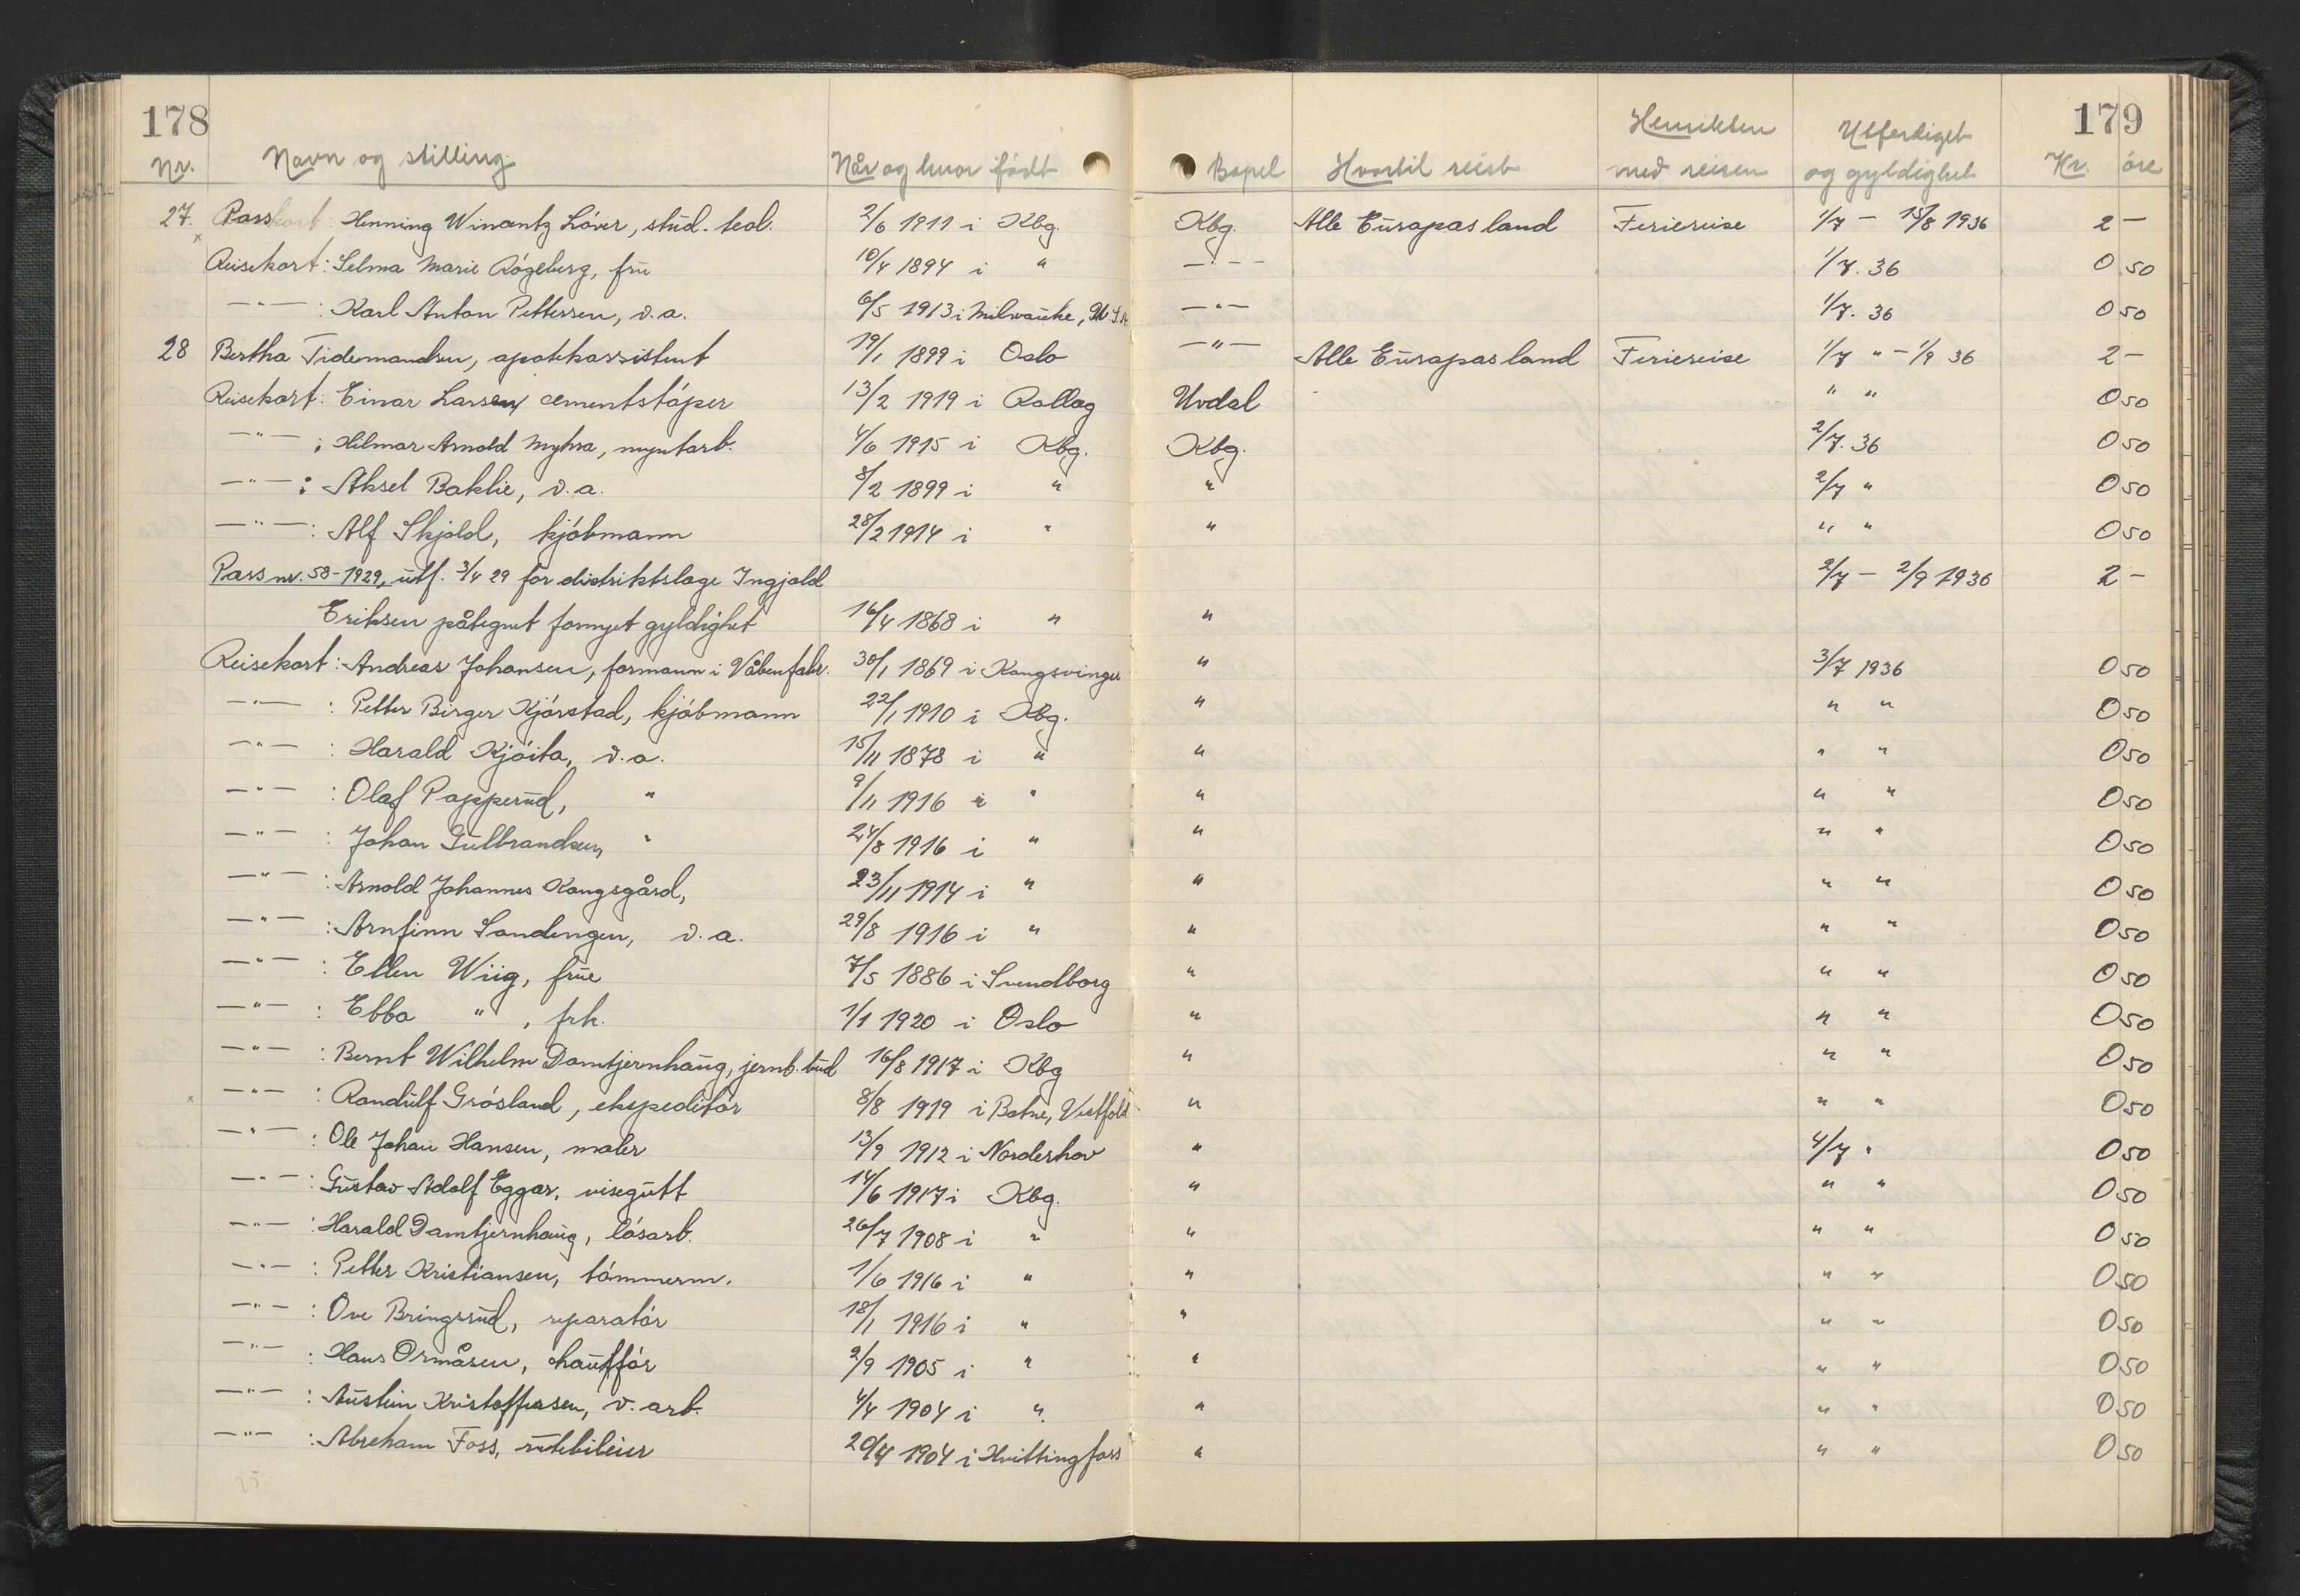 178 179
Nr. Navn og stilling Når og hvor födt Bopel Hvortil reist Hensikten med reisen Utferdiget og gyldighet Kr. öre
27. Passkort Henning Winantz Löver, stud. teol. 2/6 1911 i Kbg. Kbg. Alle Europas land Feriereise 1/7 – 15/8 1936 2 –
Reisekort: Selma Marie Rögeberg, fru 10/4 1894 i " –"– 1/7. 36 0 50
–"– : Karl Anton Pettersen, v.a. 6/5 1913 i Milwauke, U.S.A. –"– 1/7. 36 0 50
28 Bertha Tidemandsen, apotekassistent 19/1 1899 i Oslo –"– Alle Europas land Feriereise 1/7 " – 1/9 36 2 –
Reisekort: Einar Larsen cementstöper 13/2 1919 i Rollag Uvdal " " 0 50
–"– : Hilmar Arnold Myhra, myntarb. 4/6 1915 i Kbg. Kbg. 2/7. 36 0 50
–"– : Aksel Baklie, v.a. 8/2 1899 i " " 2/7 " 0 50
–"– : Alf Skjold, kjöbmann 28/2 1914 i " " " " 0 50
Pass nr. 58-1929, utf. 3/4 29 for distriktslege Ingjald 2/7 – 2/9 1936 2 –
Eriksen påtegnet fornyet gyldighet 16/4 1868 i " "
Reisekort: Andreas Johansen, formann i Våbenfabr. 30/1 1869 i Kongsvinger " 3/7 1936 0 50
–"– : Petter Birger Kjörstad, kjöbmann 22/1 1910 i Kbg. " " " 0 50
–"– : Harald Kjöita, v.a. 15/11 1878 i " " " " 0 50
–"– : Olaf Papperud, " 9/11 1916 i " " " " 0 50
–"– : Johan Gulbrandsen, " 24/8 1916 i " " " " 0 50
–"– : Arnold Johannes Kongsgård, 23/11 1914 i " " " " 0 50
–"– : Arnfinn Sandengen, v.a. 29/8 1916 i " " " " 0 50
–"– : Ellen Wiig, frue 7/5 1886 i Svendborg " " " 0 50
–"– : Ebba " , frk. 1/1 1920 i Oslo " " " 0 50
–"– : Bernt Wilhelm Damtjernhaug, jernb. bud 16/8 1917 i Kbg " " " 0 50
–"– : Randulf Grösland, ekspeditör 8/8 1919 i Botne, Vestfold " " " 0 50
–"– : Ole Johan Hansen, maler 13/9 1912 i Norderhov " 4/7 " 0 50
–"– : Gustav Adolf Eggar, visegutt 14/6 1917 i Kbg. " " " 0 50
–"– : Harald Damtjernhaug, lösarb. 26/7 1908 i " " " " 0 50
–"– : Petter Kristiansen, tömmerm. 1/6 1916 i " " " " 0 50
–"– : Ove Bringsrud, reparatör 18/1 1916 i " " " " 0 50
–"– : Hans Ormåsen, chaufför 2/9 1905 i " " " " 0 50
–"– : Austein Kristoffersen, v. arb. 4/4 1904 i " " " " 0 50
–"– : Abreham Foss, rutebileier 20/4 1904 i Hvittingfoss " " " 0 50
25